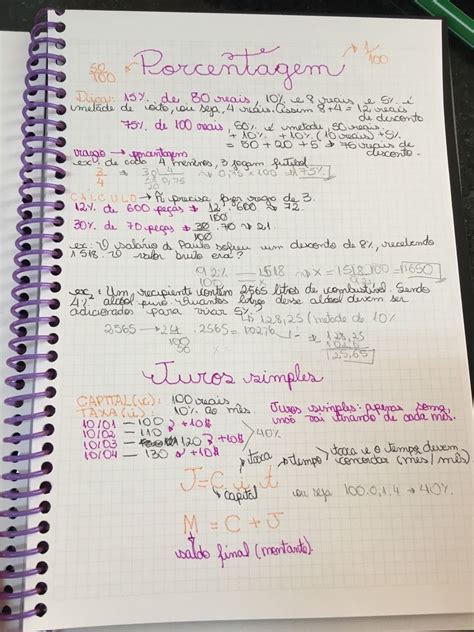 50/100
Porcentagem
→ 1/100
Dica: 15% de 80 reais, 10% é 8 reais e 5% é
metade de oito, ou seja, 4 reais. Assim 8+4 = 12 reais
de desconto
75% de 100 reais 50% é metade, 50 reais
+ 10% + 10% (10 reais) + 5%
= 50 + 20 + 5 → 75 reais de
desconto.
→ porcentagem
ex: de cada 4 meninos, 3 jogam futebol
3/4 → 30 4 0,75 → 0,75 x 100 → 75%
CÁLCULO → precisa fazer regra de 3
12% de 600 peças → 12/100 . 600 → 72
30% de 70 peças → 30/100 . 70 → 21
ex: O salário de Paulo sofreu um desconto de 8%, recebendo
1518. O valor bruto era?
92% — 1518 → x = 1518.100 = 1650
ex: Um recipiente contém 2565 litros de combustível. Sendo
4% álcool puro. Quantos litros desse álcool devem ser
adicionados para virar 5%?
→ 128,25 (metade de 10%
2565 → . 2565 = 102,6
128,25
25,65
Juros simples
CAPITAL (c): 100 reais
TAXA (i): 10% ao mês
Juros simples: apenas soma,
10/01 — 100 > +10$
10/02 — 110 > +10$
10/03 — 120 > +10$
10/04 — 130
40%
→ taxa
→ tempo
taxa e o tempo devem
concordar (mês/mês)
J = C . i . t
capital
ou seja 100.0,1.4 → 40%
M = C + J
saldo final (montante)